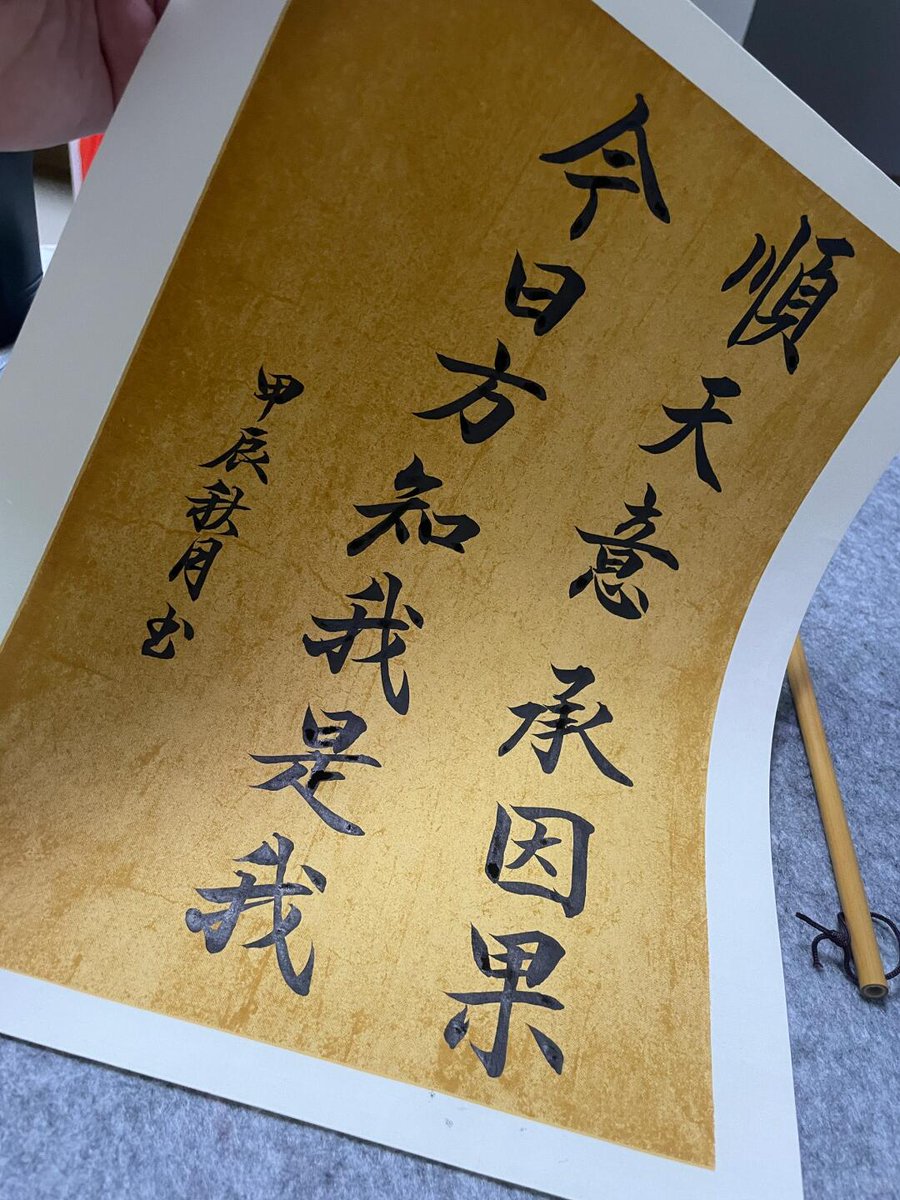 順天意承因果
今日方知我是我
甲辰秋月书